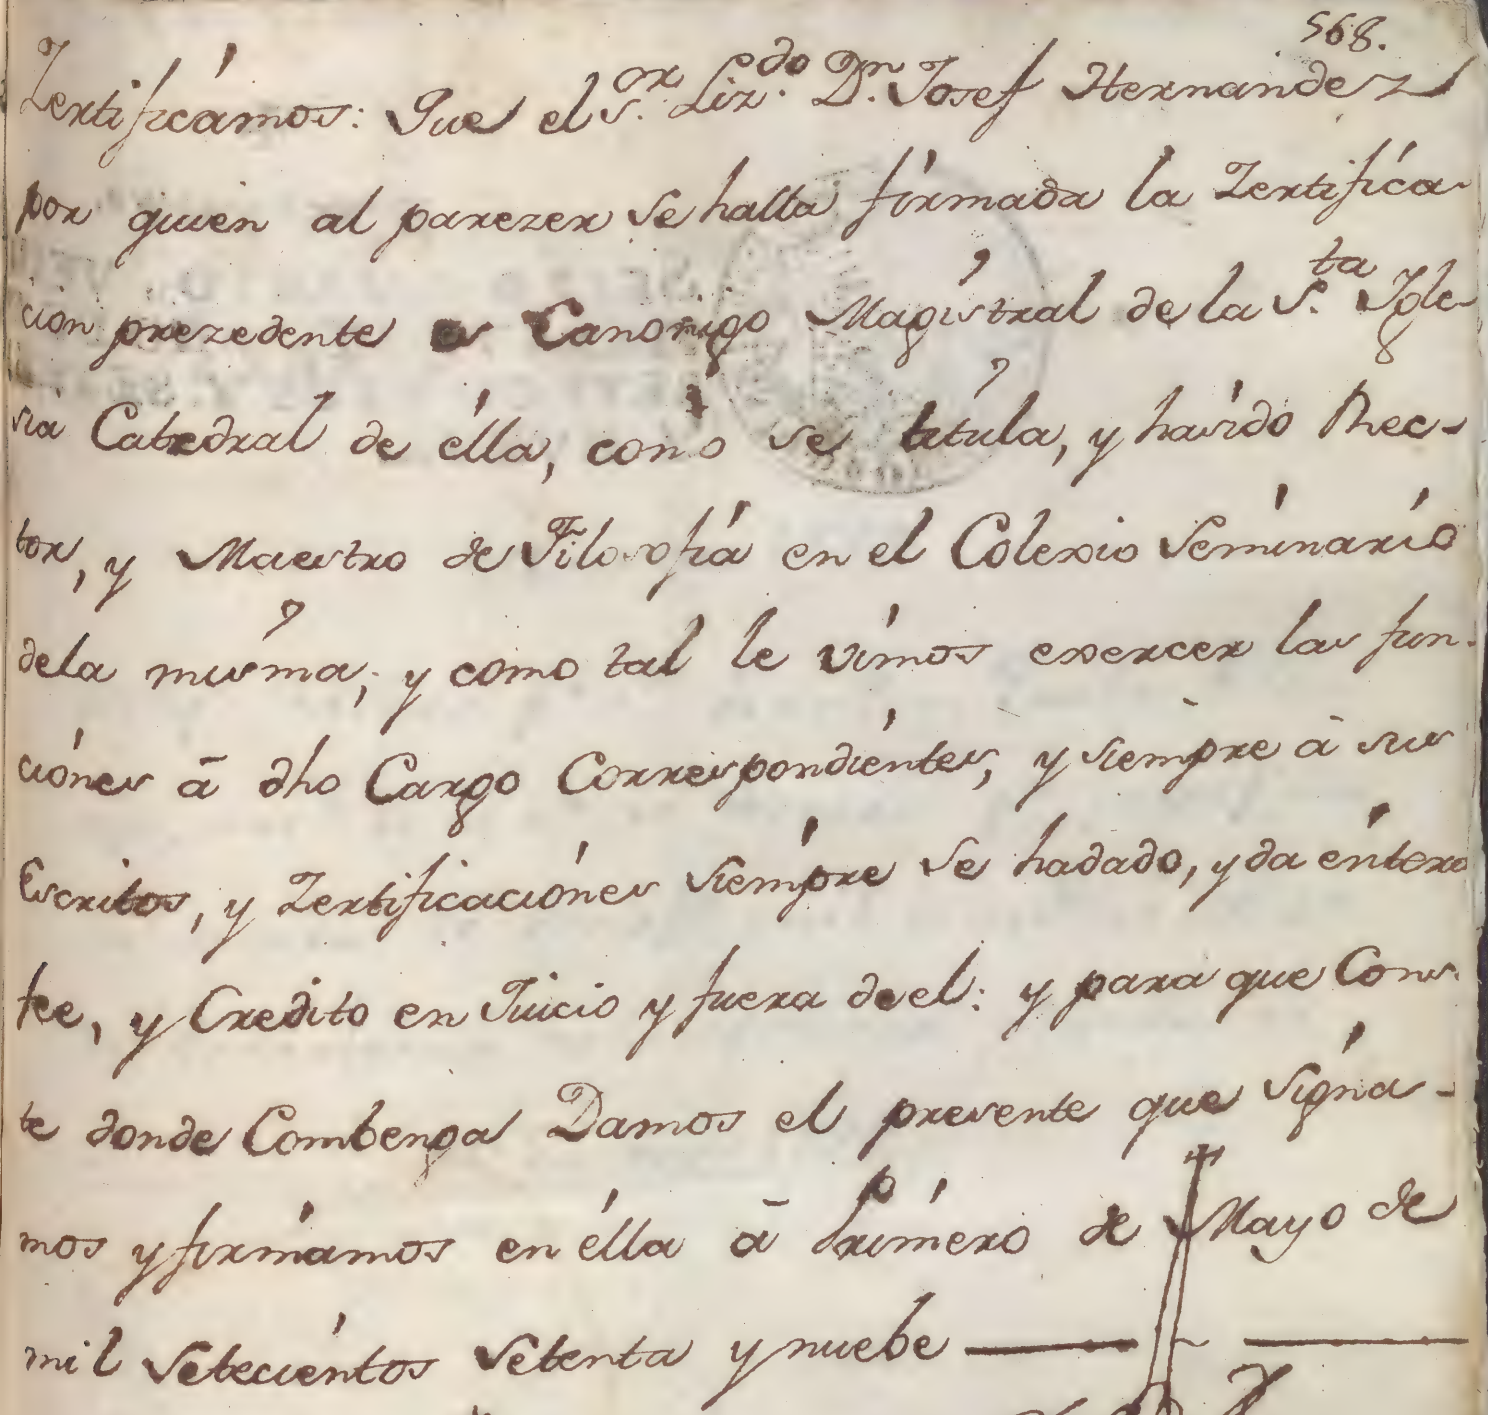 568.
Zertificámos: Que el S.or Liz.do D.n Josef Hernandez
por quien al parezer se halla firmada la Zertifica-
cion prezedente es Canonigo Magistral de la S.ta Igle-
sia Catedral de élla, como se titula, y hasido Rec-
tor, y Maestro de Filosofia en el Colexio Seminario
dela misma; y como tal le vimos exercer las fun-
ciónes á dho Cargo Correspondientes, y siempre á sus
Escritos, y Zertificaciónes siempre se hadado, y da éntera
fee, y Credito en Juicio y fuera deel: y para que Cons-
te donde Combenga Damos el presente que signa-
mos y firmámos en élla á Primero de Mayo de
mil Setecientos Setenta y nuebe